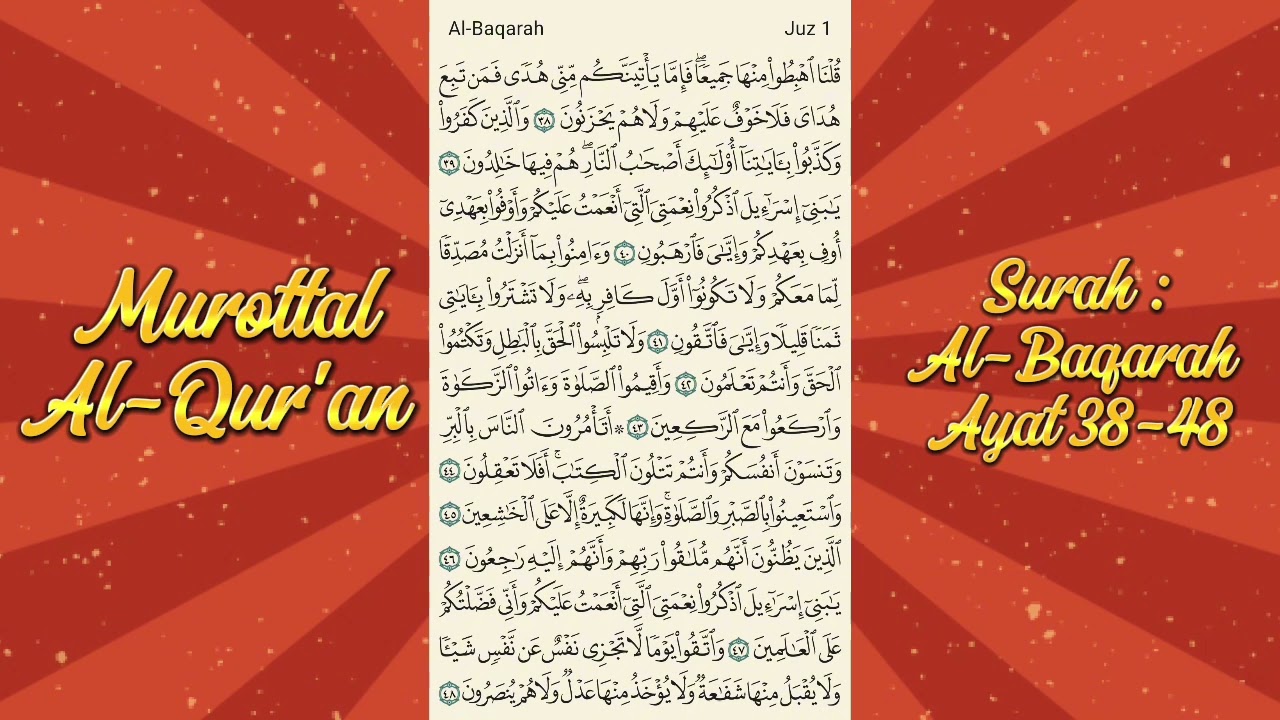 Murottal
Al-Qur'an
Al-Baqarah
Juz 1
قُلْنَا ٱهْبِطُوا۟ مِنْهَا جَمِيعًۭا ۖ فَإِمَّا يَأْتِيَنَّكُم مِّنِّى هُدًۭى فَمَن تَبِعَ
هُدَاىَ فَلَا خَوْفٌ عَلَيْهِمْ وَلَا هُمْ يَحْزَنُونَ ٣٨ وَٱلَّذِينَ كَفَرُوا۟
وَكَذَّبُوا۟ بِـَٔايَـٰتِنَآ أُو۟لَـٰٓئِكَ أَصْحَـٰبُ ٱلنَّارِ ۖ هُمْ فِيهَا خَـٰلِدُونَ ٣٩
يَـٰبَنِىٓ إِسْرَٰٓءِيلَ ٱذْكُرُوا۟ نِعْمَتِىَ ٱلَّتِىٓ أَنْعَمْتُ عَلَيْكُمْ وَأَوْفُوا۟ بِعَهْدِىٓ
أُوفِ بِعَهْدِكُمْ وَإِيَّـٰىَ فَٱرْهَبُونِ ٤٠ وَءَامِنُوا۟ بِمَآ أَنزَلْتُ مُصَدِّقًۭا
لِّمَا مَعَكُمْ وَلَا تَكُونُوٓا۟ أَوَّلَ كَافِرٍۭ بِهِۦ ۖ وَلَا تَشْتَرُوا۟ بِـَٔايَـٰتِى
ثَمَنًۭا قَلِيلًۭا وَإِيَّـٰىَ فَٱتَّقُونِ ٤١ وَلَا تَلْبِسُوا۟ ٱلْحَقَّ بِٱلْبَـٰطِلِ وَتَكْتُمُوا۟
ٱلْحَقَّ وَأَنتُمْ تَعْلَمُونَ ٤٢ وَأَقِيمُوا۟ ٱلصَّلَوٰةَ وَءَاتُوا۟ ٱلزَّكَوٰةَ
وَٱرْكَعُوا۟ مَعَ ٱلرَّٰكِعِينَ ٤٣ ۞ أَتَأْمُرُونَ ٱلنَّاسَ بِٱلْبِرِّ
وَتَنسَوْنَ أَنفُسَكُمْ وَأَنتُمْ تَتْلُونَ ٱلْكِتَـٰبَ ۚ أَفَلَا تَعْقِلُونَ ٤٤
وَٱسْتَعِينُوا۟ بِٱلصَّبْرِ وَٱلصَّلَوٰةِ ۚ وَإِنَّهَا لَكَبِيرَةٌ إِلَّا عَلَى ٱلْخَـٰشِعِينَ ٤٥
ٱلَّذِينَ يَظُنُّونَ أَنَّهُم مُّلَـٰقُوا۟ رَبِّهِمْ وَأَنَّهُمْ إِلَيْهِ رَٰجِعُونَ ٤٦
يَـٰبَنِىٓ إِسْرَٰٓءِيلَ ٱذْكُرُوا۟ نِعْمَتِىَ ٱلَّتِىٓ أَنْعَمْتُ عَلَيْكُمْ وَأَنِّى فَضَّلْتُكُمْ
عَلَى ٱلْعَـٰلَمِينَ ٤٧ وَٱتَّقُوا۟ يَوْمًۭا لَّا تَجْزِى نَفْسٌ عَن نَّفْسٍۢ شَيْـًۭٔا
وَلَا يُقْبَلُ مِنْهَا شَفَـٰعَةٌۭ وَلَا يُؤْخَذُ مِنْهَا عَدْلٌۭ وَلَا هُمْ يُنصَرُونَ ٤٨
Surah :
Al-Baqarah
Ayat 38-48